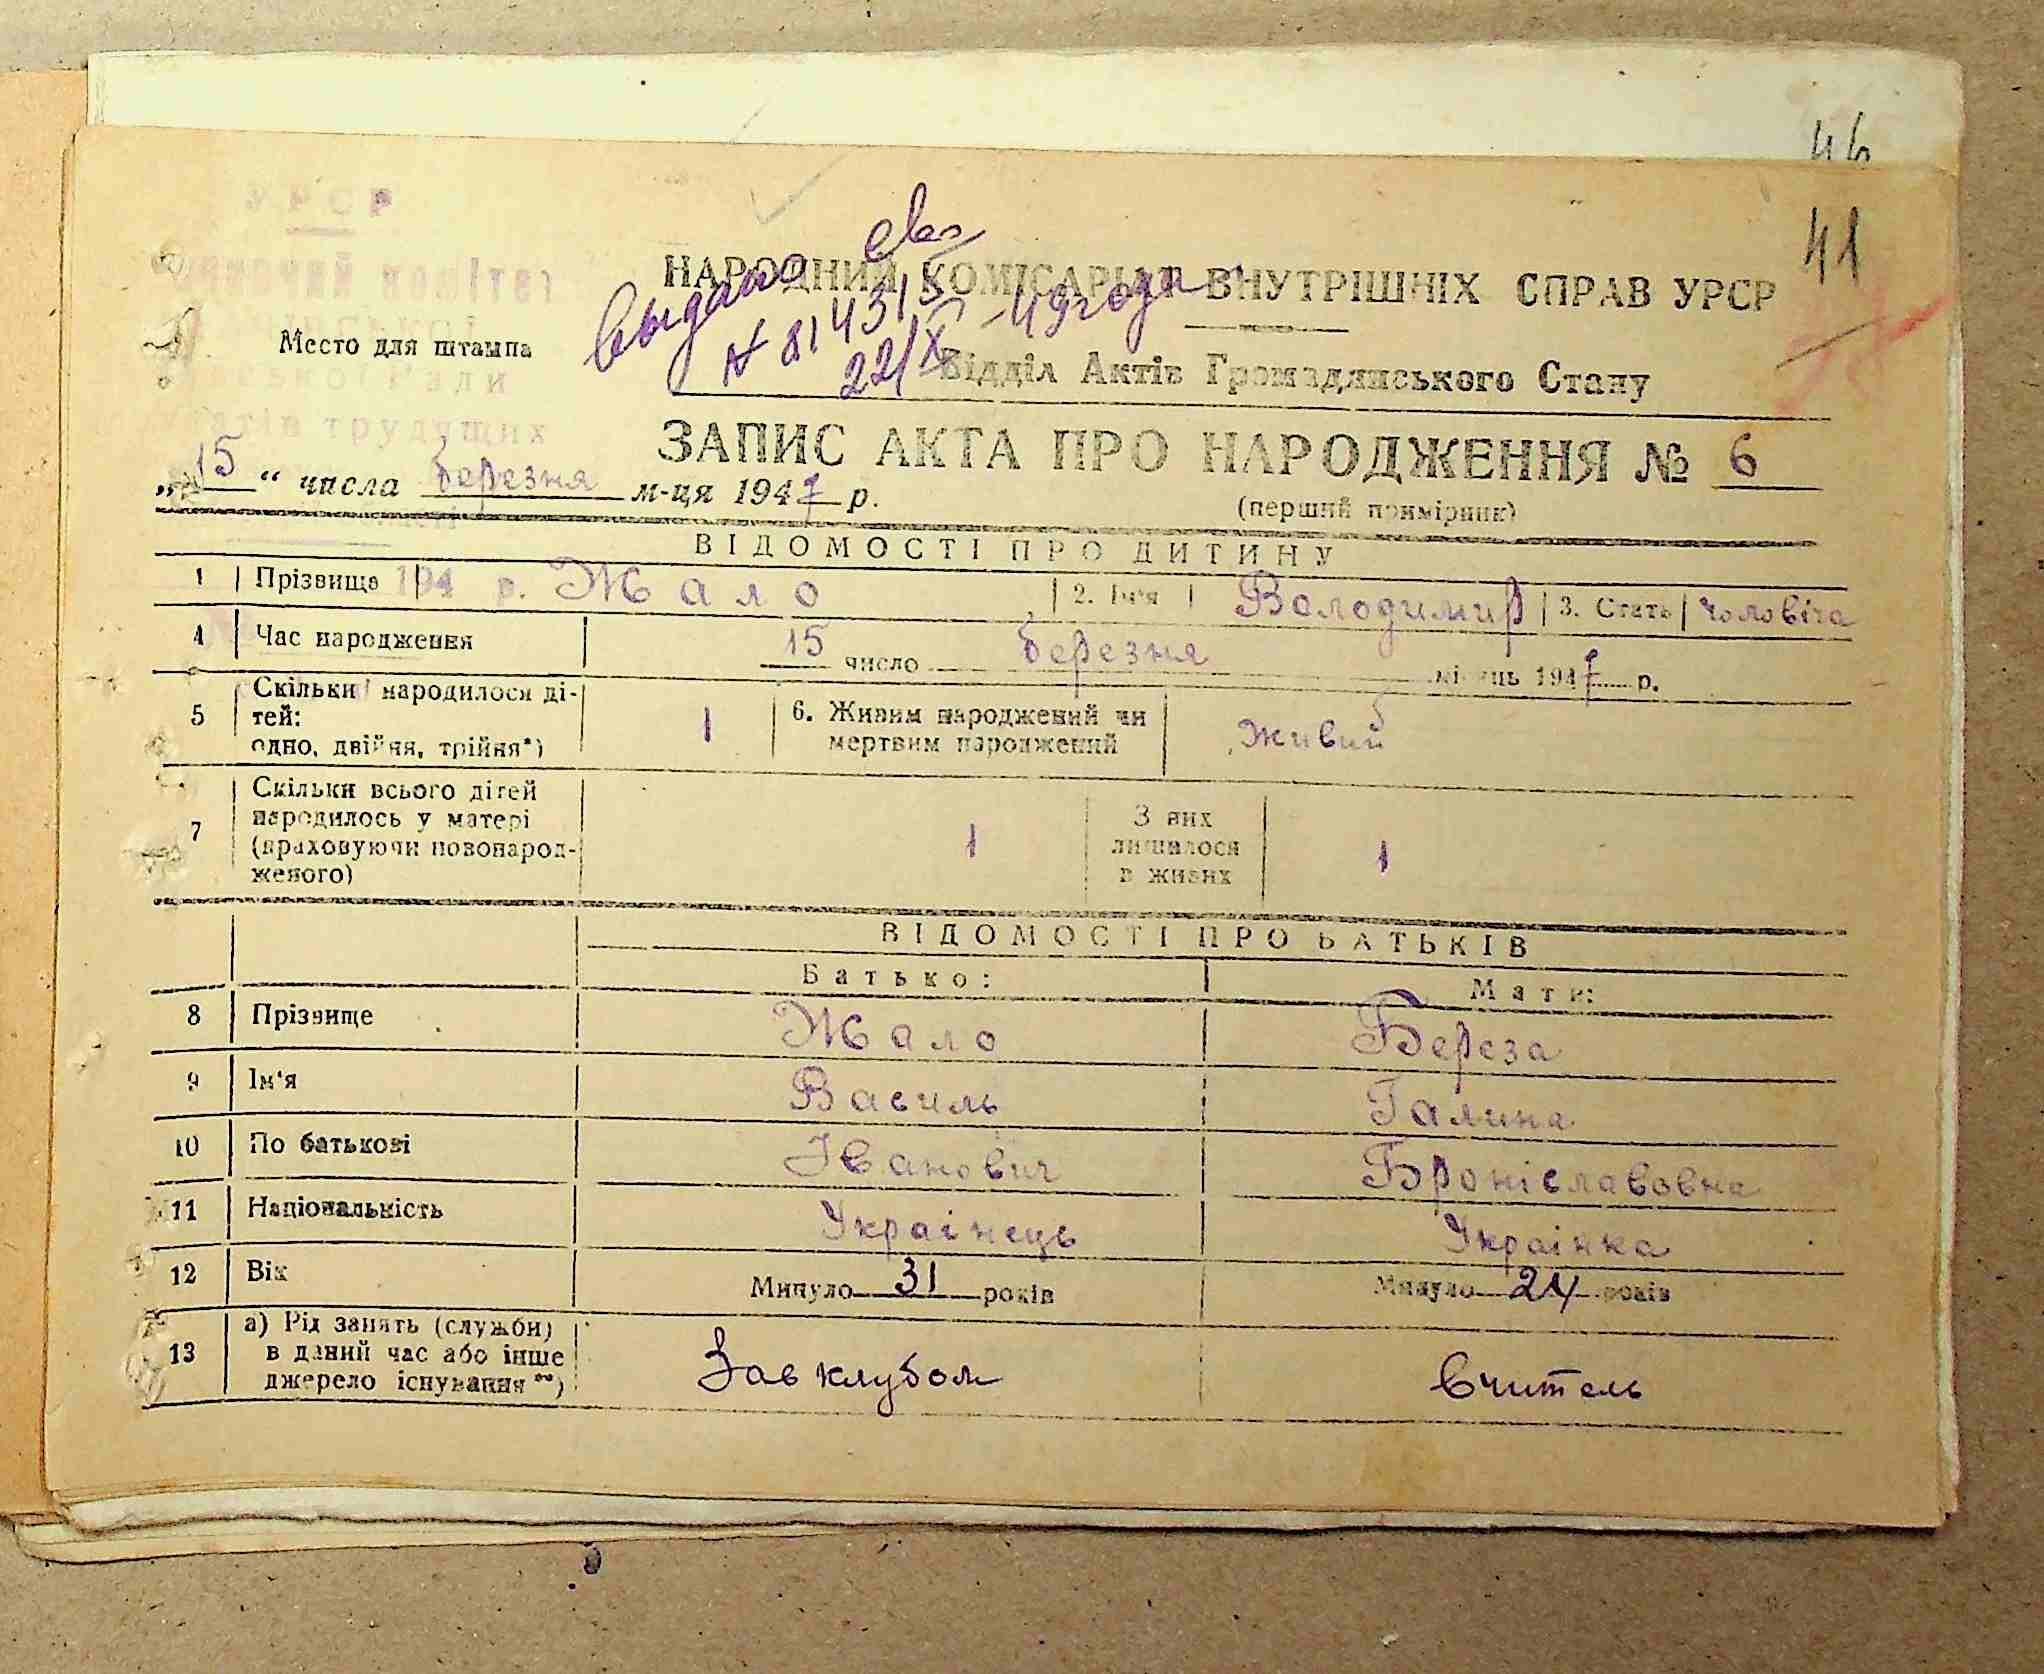 46
41
УРСР
Выдано свид
НАРОДНИЙ КОМІСАРІАТ ВНУТРІШНІХ СПРАВ УРСР
Место для штампа
22/X - 49 года
Відділ Актів Громадянського Стану
ЗАПИС АКТА ПРО НАРОДЖЕННЯ № 6
„15“ числа березня м-ця 1947 р.
(перший примірник)
ВІДОМОСТІ ПРО ДИТИНУ
1 Прізвище Жало 2. Ім'я Володимир 3. Стать чоловіча
4 Час народження 15 число березня місяць 1947 р.
5 Скільки народилося ді-
тей:
одно, двійня, трійня*) 1 6. Живим народжений чи
мертвим народжений живий
7 Скільки всього дітей
народилось у матері
(враховуючи новонарод-
женого) 1 З них
лишалося
в живих 1
ВІДОМОСТІ ПРО БАТЬКІВ
Батько: Мати:
8 Прізвище Жало Береза
9 Ім'я Василь Галина
10 По батькові Іванович Броніславовна
11 Національність Українець Українка
12 Вік Минуло 31 років Минуло 24 років
13 а) Рід занять (служби)
в даний час або інше
джерело існування **) Зав клубом Вчитель